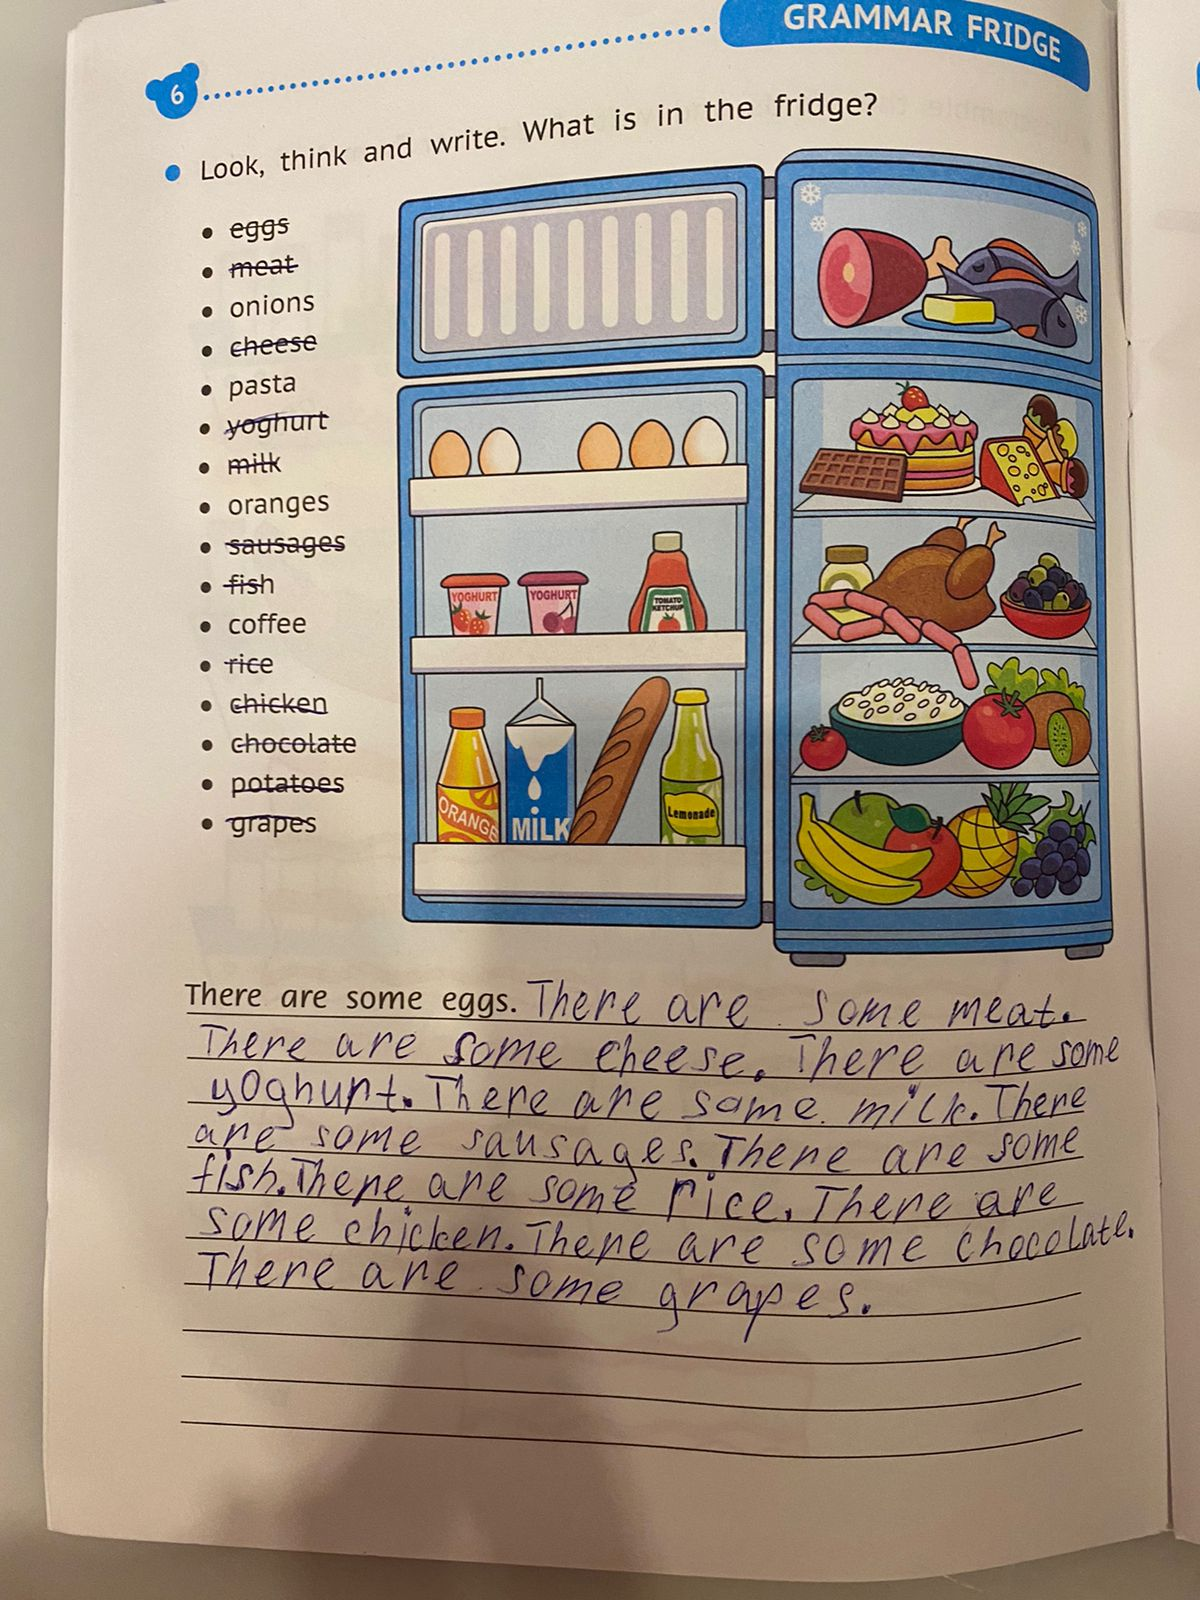 GRAMMAR FRIDGE
6
Look, think and write. What is in the fridge?
eggs
meat
onions
cheese
pasta
yoghurt
milk
oranges
sausages
fish
coffee
rice
chicken
chocolate
potatoes
grapes
YOGHURT
YOGHURT
TOMATO
KETCHUP
ORANGE
MILK
Lemonade
There are some eggs. There are some meat.
There are some cheese. There are some
yoghurt. There are some milk. There
are some sausages. There are some
fish. There are some rice. There are
some chicken. There are some chocolate.
There are some grapes.